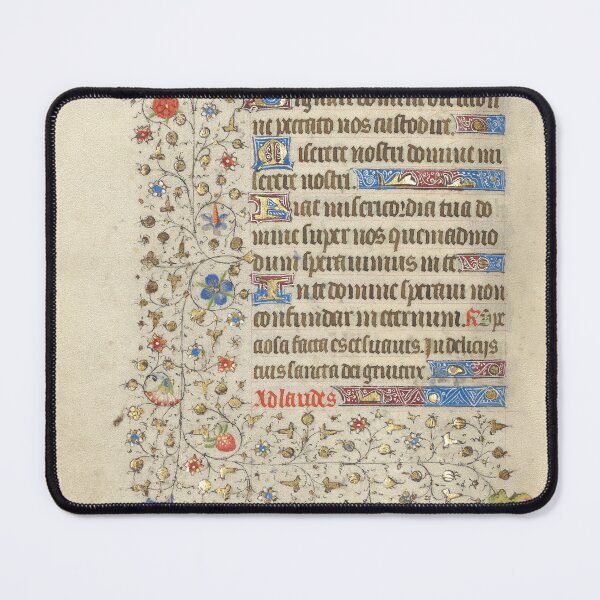 ignare domine die isto sin
ne peccato nos custodire.
Miserere nostri domine mi
serere nostri.
Fiat misericordia tua do
mine super nos quemadmo
dum sperauimus in te.
In te domine speraui non
confundar in eternum. Rp
ciosa facta es et suauis. In delicijs
tuis sancta dei genitrix
Ad laudes